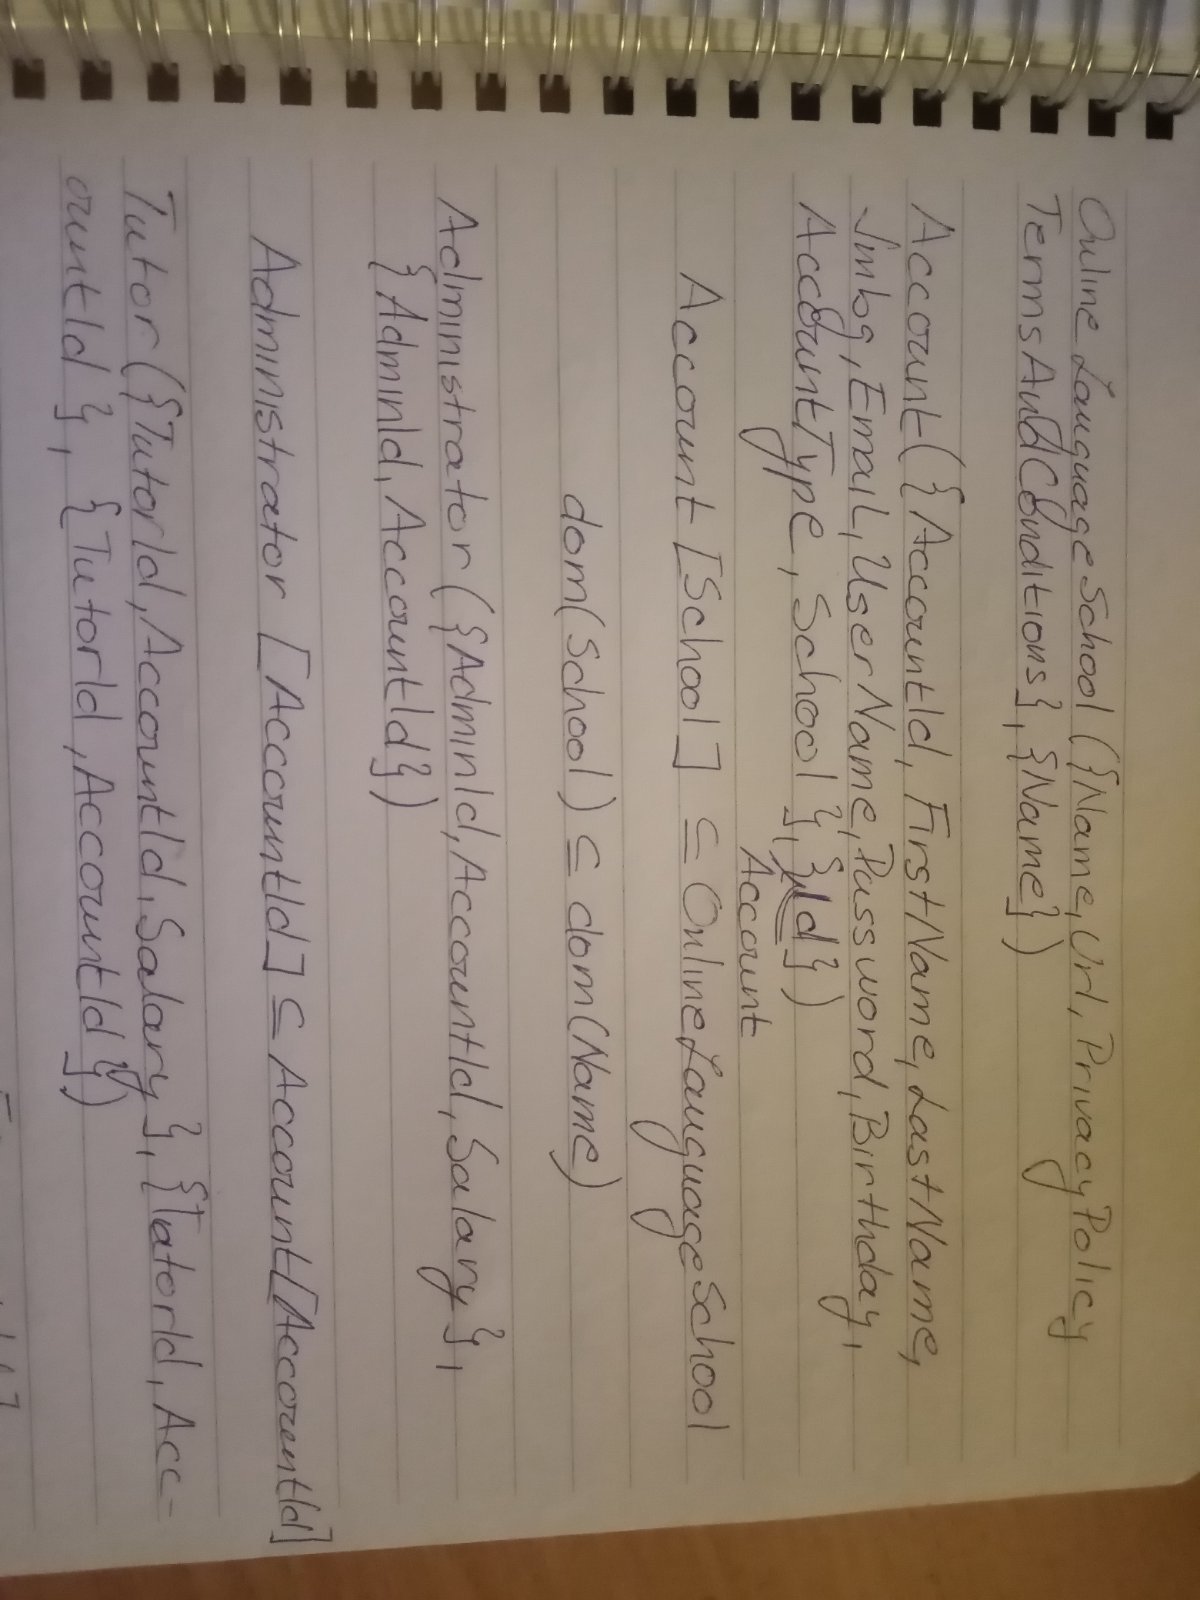 OnlineLanguageSchool ({Name, Url, PrivacyPolicy
TermsAndConditions}, {Name})
Account ({AccountId, FirstName, LastName,
Jmbg, Email, UserName, Password, Birthday,
AccountType, School}, {Id})
Account
Account [School] ⊆ OnlineLanguageSchool
dom(School) ⊆ dom(Name)
Administrator ({AdminId, AccountId, Salary},
{AdminId, AccountId})
Administrator [AccountId] ⊆ Account[AccountId]
Tutor ({TutorId, AccountId, Salary}, {TutorId, Acc-
ountId}, {TutorId, AccountId})